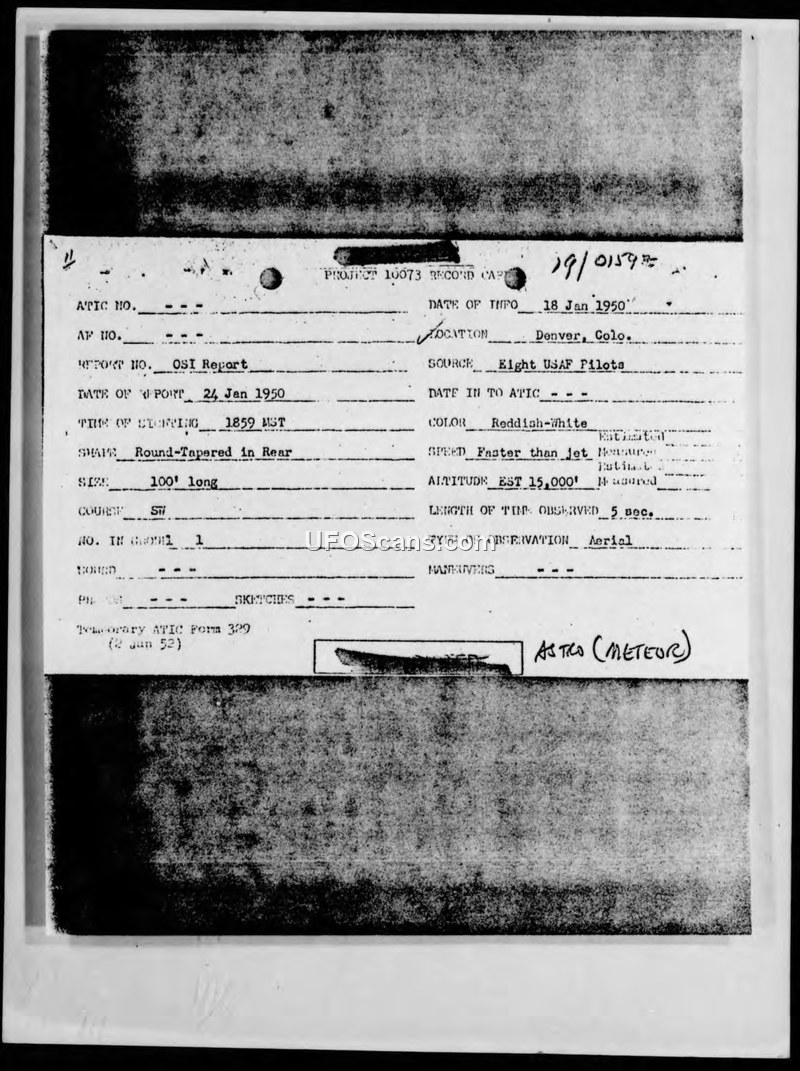 11
19/0159Z
PROJECT 10073 RECORD CARD
ATIC NO. - - -
DATE OF INFO 18 Jan 1950
AF NO. - - -
LOCATION Denver, Colo.
REPORT NO. OSI Report
SOURCE Eight USAF Pilots
DATE OF REPORT 24 Jan 1950
DATE IN TO ATIC - - -
TIME OF SIGHTING 1859 MST
COLOR Reddish-White
SHAPE Round-Tapered in Rear
Estimated
SPEED Faster than jet Measured
SIZE 100' long
Estimated
ALTITUDE EST 15,000' Measured
COURSE SW
LENGTH OF TIME OBSERVED 5 sec.
NO. IN GROUP 1
TYPE OF OBSERVATION Aerial
SOUND - - -
MANEUVERS - - -
- - - SKETCHES - - -
Temporary ATIC Form 329
(2 Jan 52)
ASTRO (METEOR)
UFOScans.com